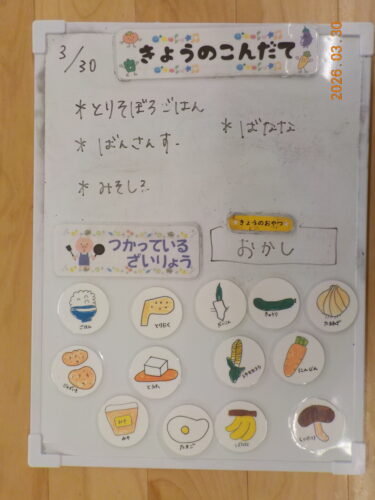 3/30
きょうのこんだて
2026.03.30
*とりそぼろごはん
*ばんさんすー
*ばなな
*みそしる
つかっている
ざいりょう
きょうのおやつ
おかし
ごはん
とりにく
だいこん
きゅうり
たまねぎ
じゃがいも
とうふ
とうもろこし
にんじん
みそ
みそ
たまご
ばなな
しいたけ